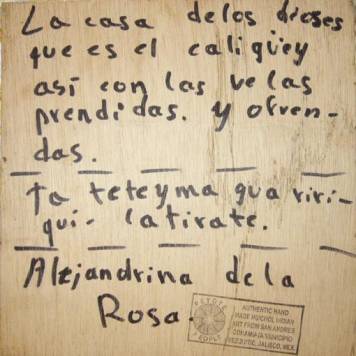 La casa delos dioses
que es el caligüey
así con las velas
prendidas. y ofren-
das.
Ta teteyma gua riri-
qui- latirate.
Alejandrina dela
Rosa.
PEYOTE
PEOPLE
AUTHENTIC HAND
MADE HUICHOL INDIAN
ART FROM SAN ANDRES
COHAMIATA MUNICIPIO
MEZQUITIC, JALISCO, MEX.